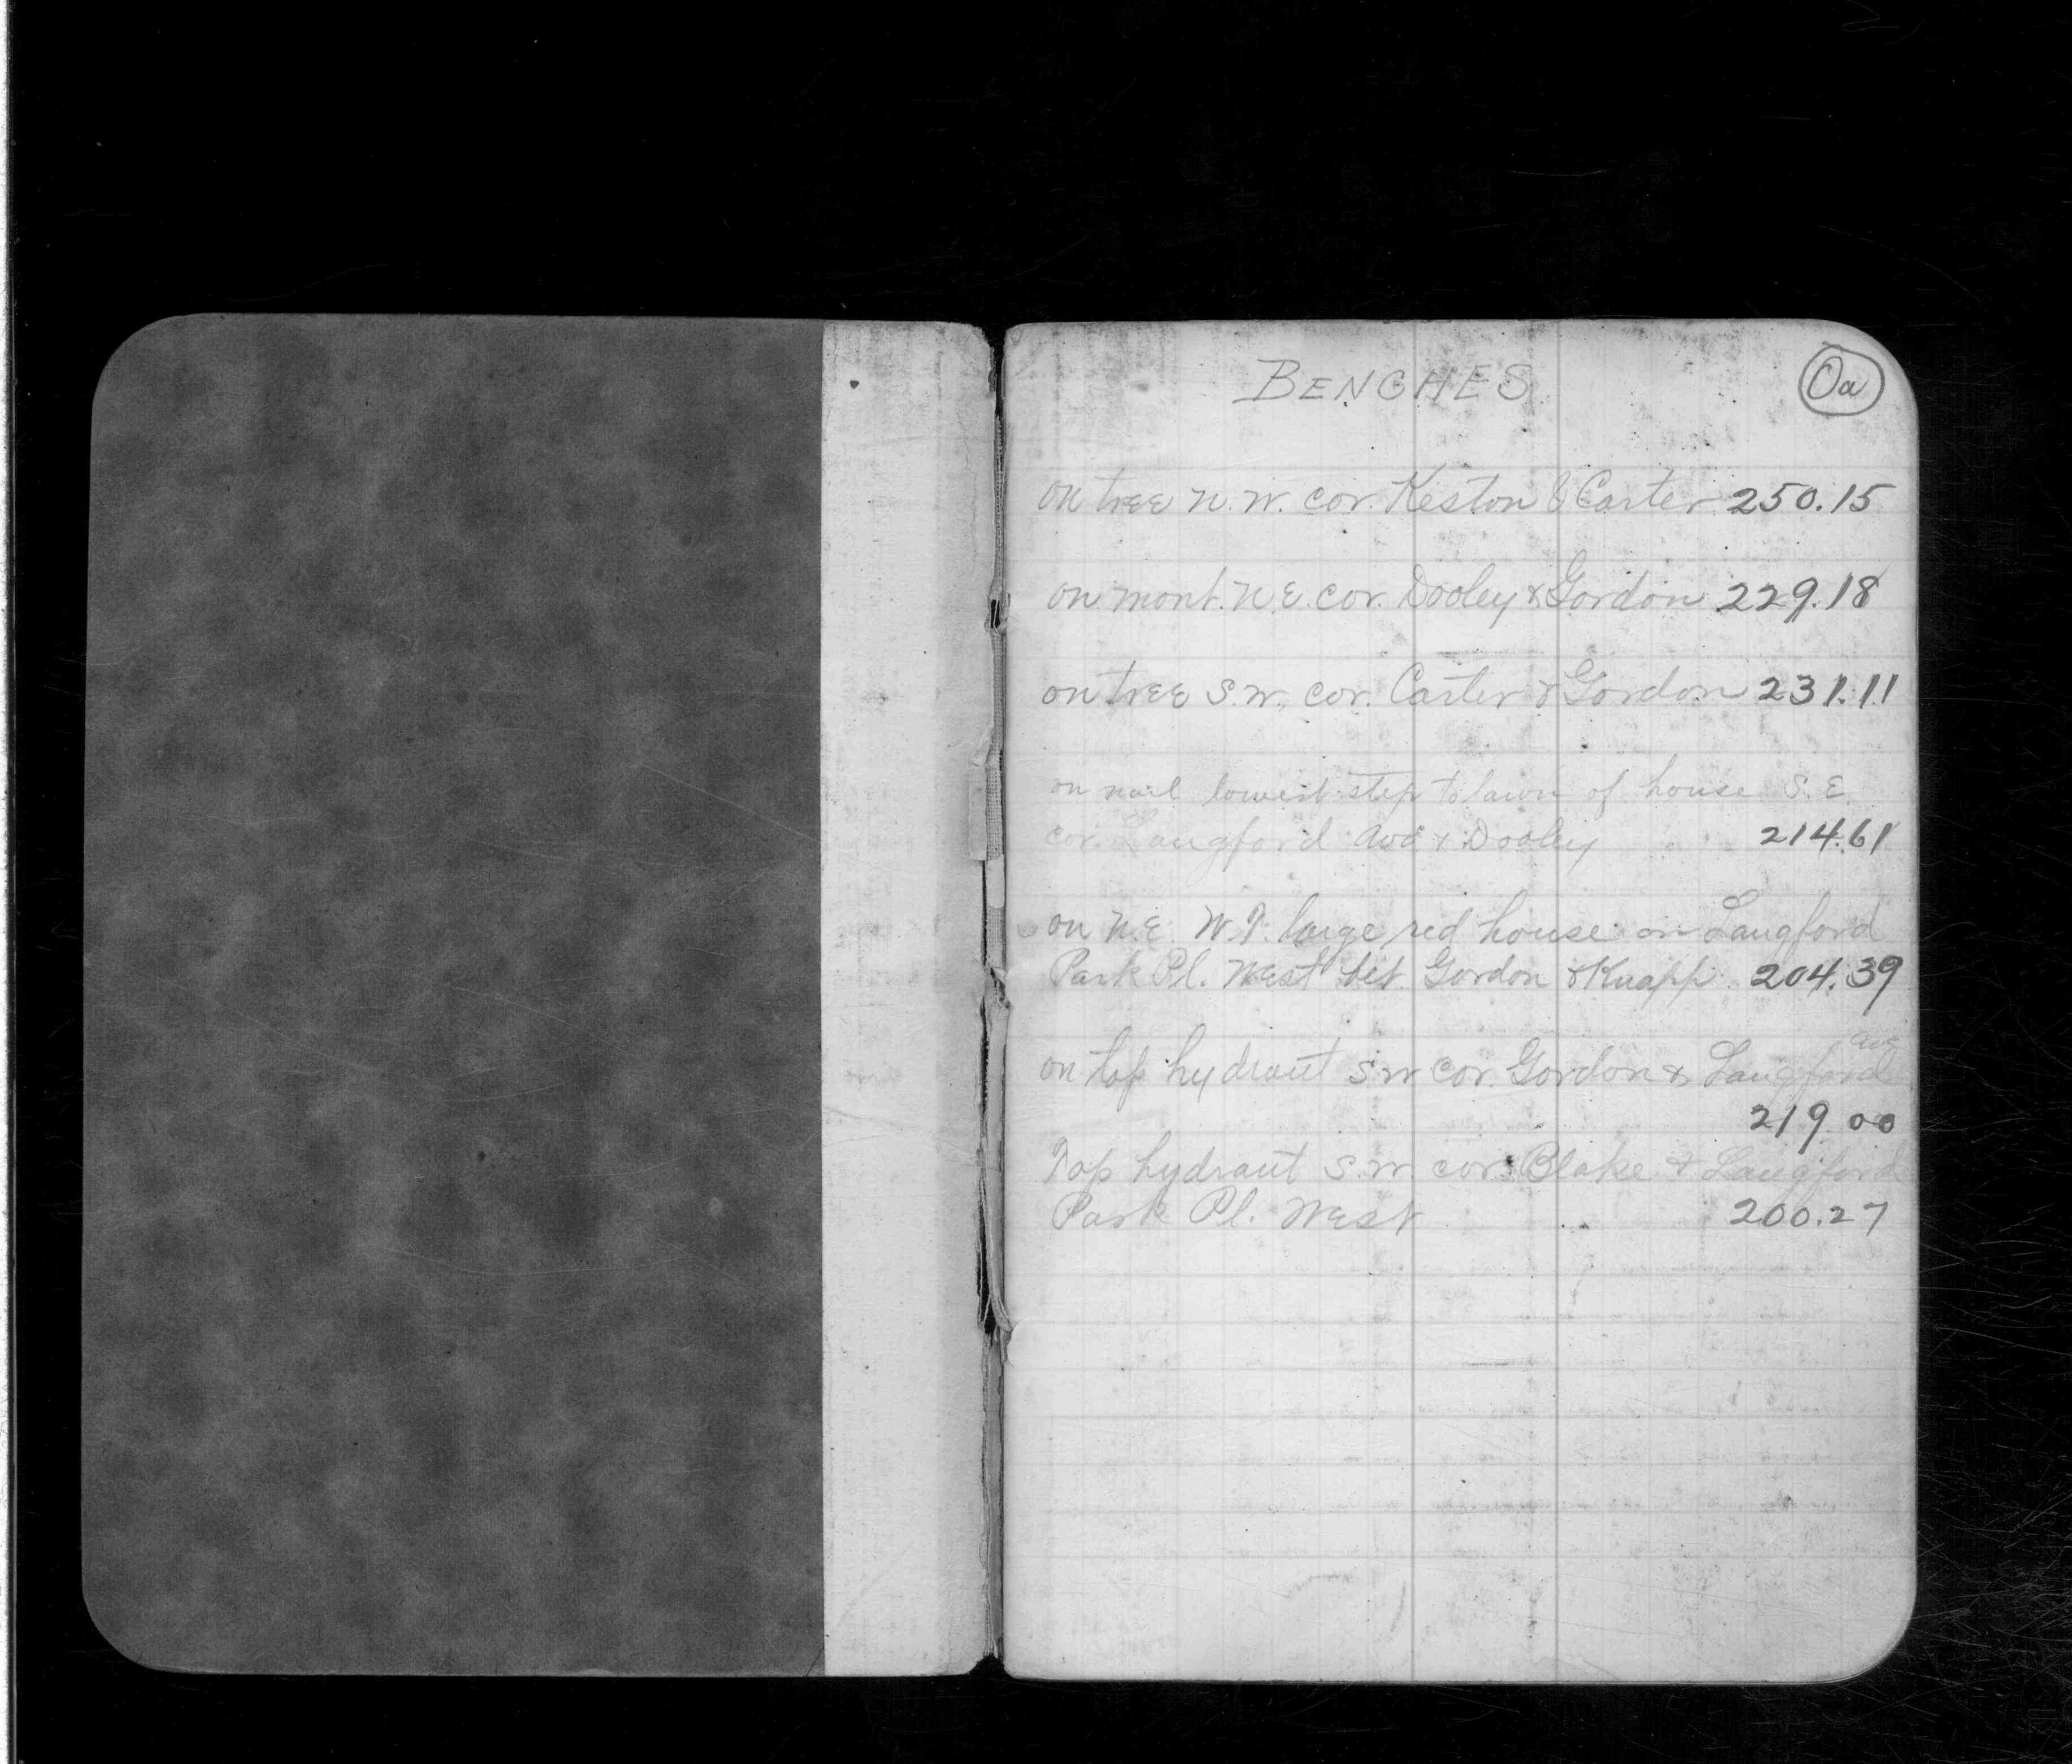 BENCHES
0a
on tree N.W. cor. Keston & Carter 250.15
on mont. N.E. cor. Dooley & Gordon 229.18
on tree S.W. cor. Carter & Gordon 231.11
on nail lowest step to lawn of house S.E.
cor. Langford Ave & Dooley 214.61
on N.E. W.T. large red house on Langford
Park Pl. West bet Gordon & Knapp 204.39
Ave
on top hydrant S W cor. Gordon & Langford
219 00
Top hydrant S.W. cor. Blake & Langford
Park Pl. West 200.27